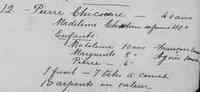 12 - Pierre Chicoine - 40 ans
Madeleine Chrestien sa femme 40 "
Enfants
Madeleine 10 ans - François
Marguerite 8 " - Agnès
Pierre - 6 "
1 fusil - 7 bêtes à cornes
10 arpents en valeur